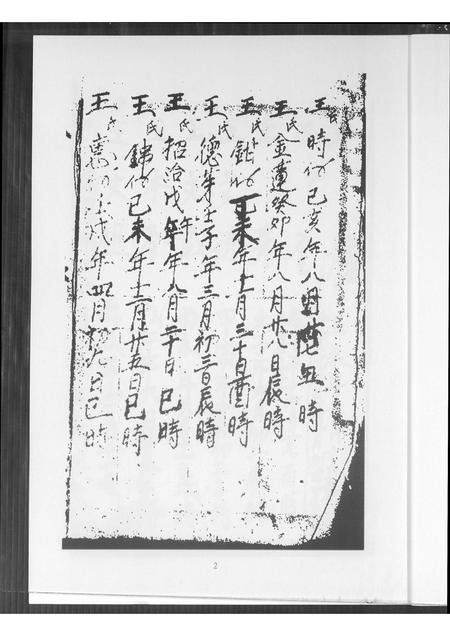 王氏時伩己亥年八月廿七丑時
王氏金蓮癸卯年八月廿八日辰時
王氏 己未年十一月三十日酉時
王氏德芽壬子年三月初三日辰時
王氏招治戊午年八月二十日巳時
王氏銻伩己未年十二月廿五日巳時
王氏 壬戌年四月初九日巳時
2